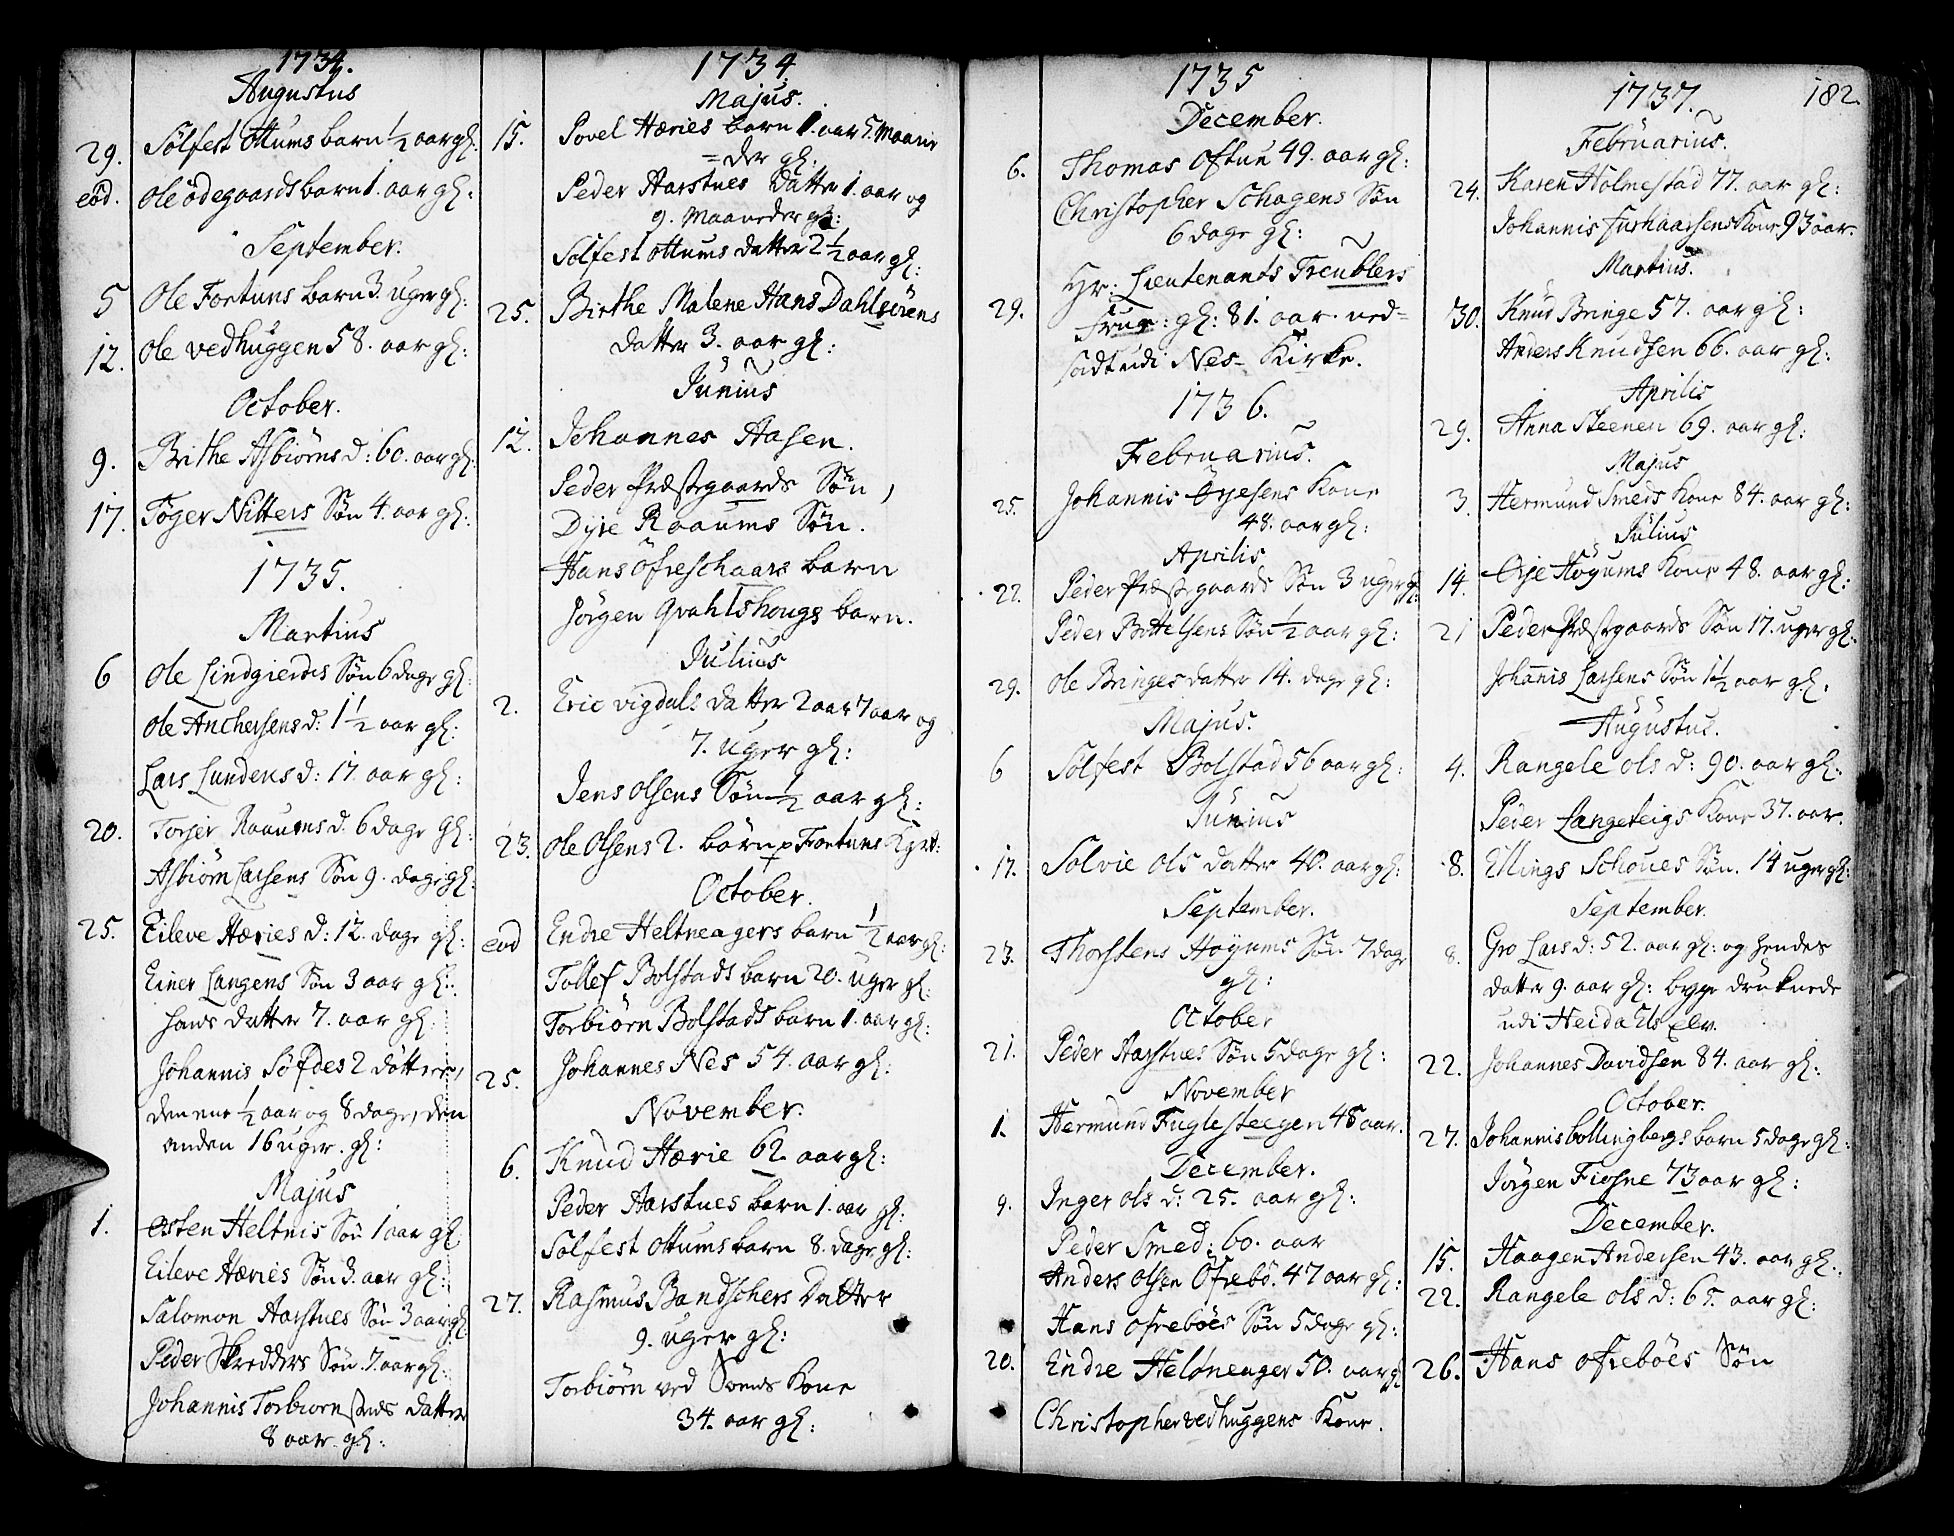 1734.
Augustus
29. Solfest Ottums barn 1/2 aar gl:
eod. Ole Ödegaards barn 1. aar gl:
September.
5 Ole Fortuns barn 3. uger gl:
12. Ole vedhuggen 58. aar gl:
October.
9. Brithe Asbiörns d: 60. aar gl:
17. Töger Nitters Søn 4. aar gl:
1735.
Martius
6 Ole Lindgierdes Søn 6 dage gl:
Ole Anchersens d: 1 1/2 aar gl:
Lars Lundens d: 17. aar gl:
20. Torger Raaums d. 6 dage gl:
Asbiörn Larsens Søn 9. dage gl:
25. Eileve Hæries d: 12. dage gl:
Einer Langens Søn 3 aar gl:
hans datter 7. aar gl:
Johannis Söfdes 2 döttrer,
den ene 1/2 aar og 8 dage, den
anden 16 uger. gl:
Majus
1. Østen Heltnis Søn 1 aar gl:
Eileve Hæries Søn 3. aar gl:
Salomon Aarstnes Søn 3 aar gl:
Peder Skredders Søn 7. aar gl:
Johannis Torbiørnstads datter
8 aar. gl:
1734.
Majus.
15. Povel Hæries barn 1. aar 5. Maane
=der gl:
Peder Aarstnes Datter 1. aar og
9. Maaneder gl:
Solfest Ottums datter 2 1/2 aar gl:
25. Birthe Malene Hans Dahlsörens
datter 3. aar gl:
Junius
12. Johannes Aasen.
Peder Præstegaards Søn,
Dyre Raaums Søn.
Hans Öfreschaars barn
Jörgen Qvahlshougs barn.
Julius
2. Eric Vigdals datter 2 aar 7 aar og
7. uger gl:
Jens Olsens Søn 1/2 aar gl:
23. Ole Olsens 2. börn p Fortuns Kgrd:
October.
eod Endre Heltneagers barn 1/2 aar gl:
Tollef Bolstads barn 20. uger gl:
Torbiörn Bolstads barn 1. aar gl:
25. Johannes Nes 54. aar gl:
November.
6. Knud Hærie 62. aar gl:
Peder Aarstnes barn 1. aar gl:
Solfest Ottums barn 8. dage gl:
27. Rasmus Bandschers Datter
9. uger gl:
Torbiörn ved Soens Kone
34. aar gl:
1735
December.
6. Thomas Oftun 49. aar gl:
Christopher Schagens Søn
6 dage gl:
29. Hr: Lieutenants Treublers
Frue: gl: 81. aar. ned=
sadt udi Nes- Kirke.
1736.
Februarius.
25. Johannis Öyesens Kone
48. aar gl:
Aprilis
22. Peder Præstegaards Søn 3 uger gl:
Peder Bottelsens Søn 1/2 aar gl:
29. Ole Bringes datter 14. dage gl:
Majus.
6 Solfest Bolstad 56 aar gl:
Junius
17. Solvie Ols datter 40. aar gl:
September.
23. Thorstens Höyums Søn 7 dage
gl:
October
21. Peder Aarstnes Søn 5 dage gl:
November
1. Hermund Fuglesteegen 48 aar.
December.
9. Inger Ols d: 25. aar gl:
Peder Smed: 60. aar
Anders Olsen Öfrebö. 47 aar gl:
Hans Ofreböes Søn 5 dage gl:
20. Endre Heltneager 50. aar gl
Christopher vedhuggens Kone.
1737. 182.
Februarius.
24. Karen Holmestad 77. aar gl:
Johannis Kone 93 aar.
Martius.
30. Knud Bringe 57. aar gl:
Anders Knudsen 66. aar gl:
Aprilis
29. Anna Steenen 69. aar gl:
Majus
3. Hermund Smeds Kone 84. aar gl:
Julius
14. Öye Höyums Kone 48. aar gl:
21 Peder Præstegaards Søn 17. uger gl:
Johanis Larsens Søn 1 1/2 aar gl:
Augustus.
4. Rangele Ols d: 90. aar gl:
Peder Langeteigs Kone 37. aar.
8. Ellings Schoues Søn. 14 uger gl:
September.
8. Gro Lars d: 52. aar gl: og hendes
datter 9. aar gl: bege druknede
udi Heidahls Elv.
22. Johannes Davidsen 84. aar gl:
October.
27. Johannis bollingbergs barn 5 dage gl:
Jörgen Fiosne 73 aar gl:
December.
15. Haagen Andersen 43. aar gl:
22. Rangele Ols d: 65. aar gl:
26. Hans Ofreböes Søn